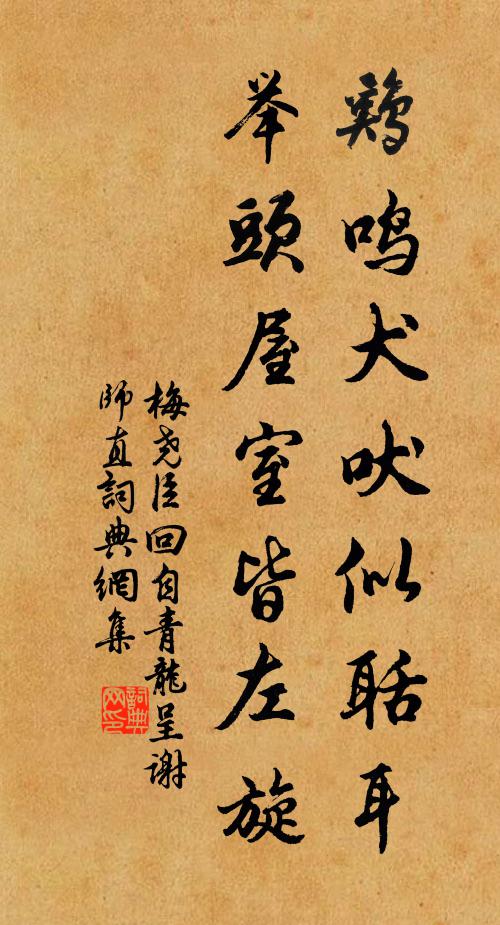 鷄鳴犬吠似聒耳
举頭屋室皆左旋
梅尧臣回自青龍呈謝
師直詞典網集
詞典网印